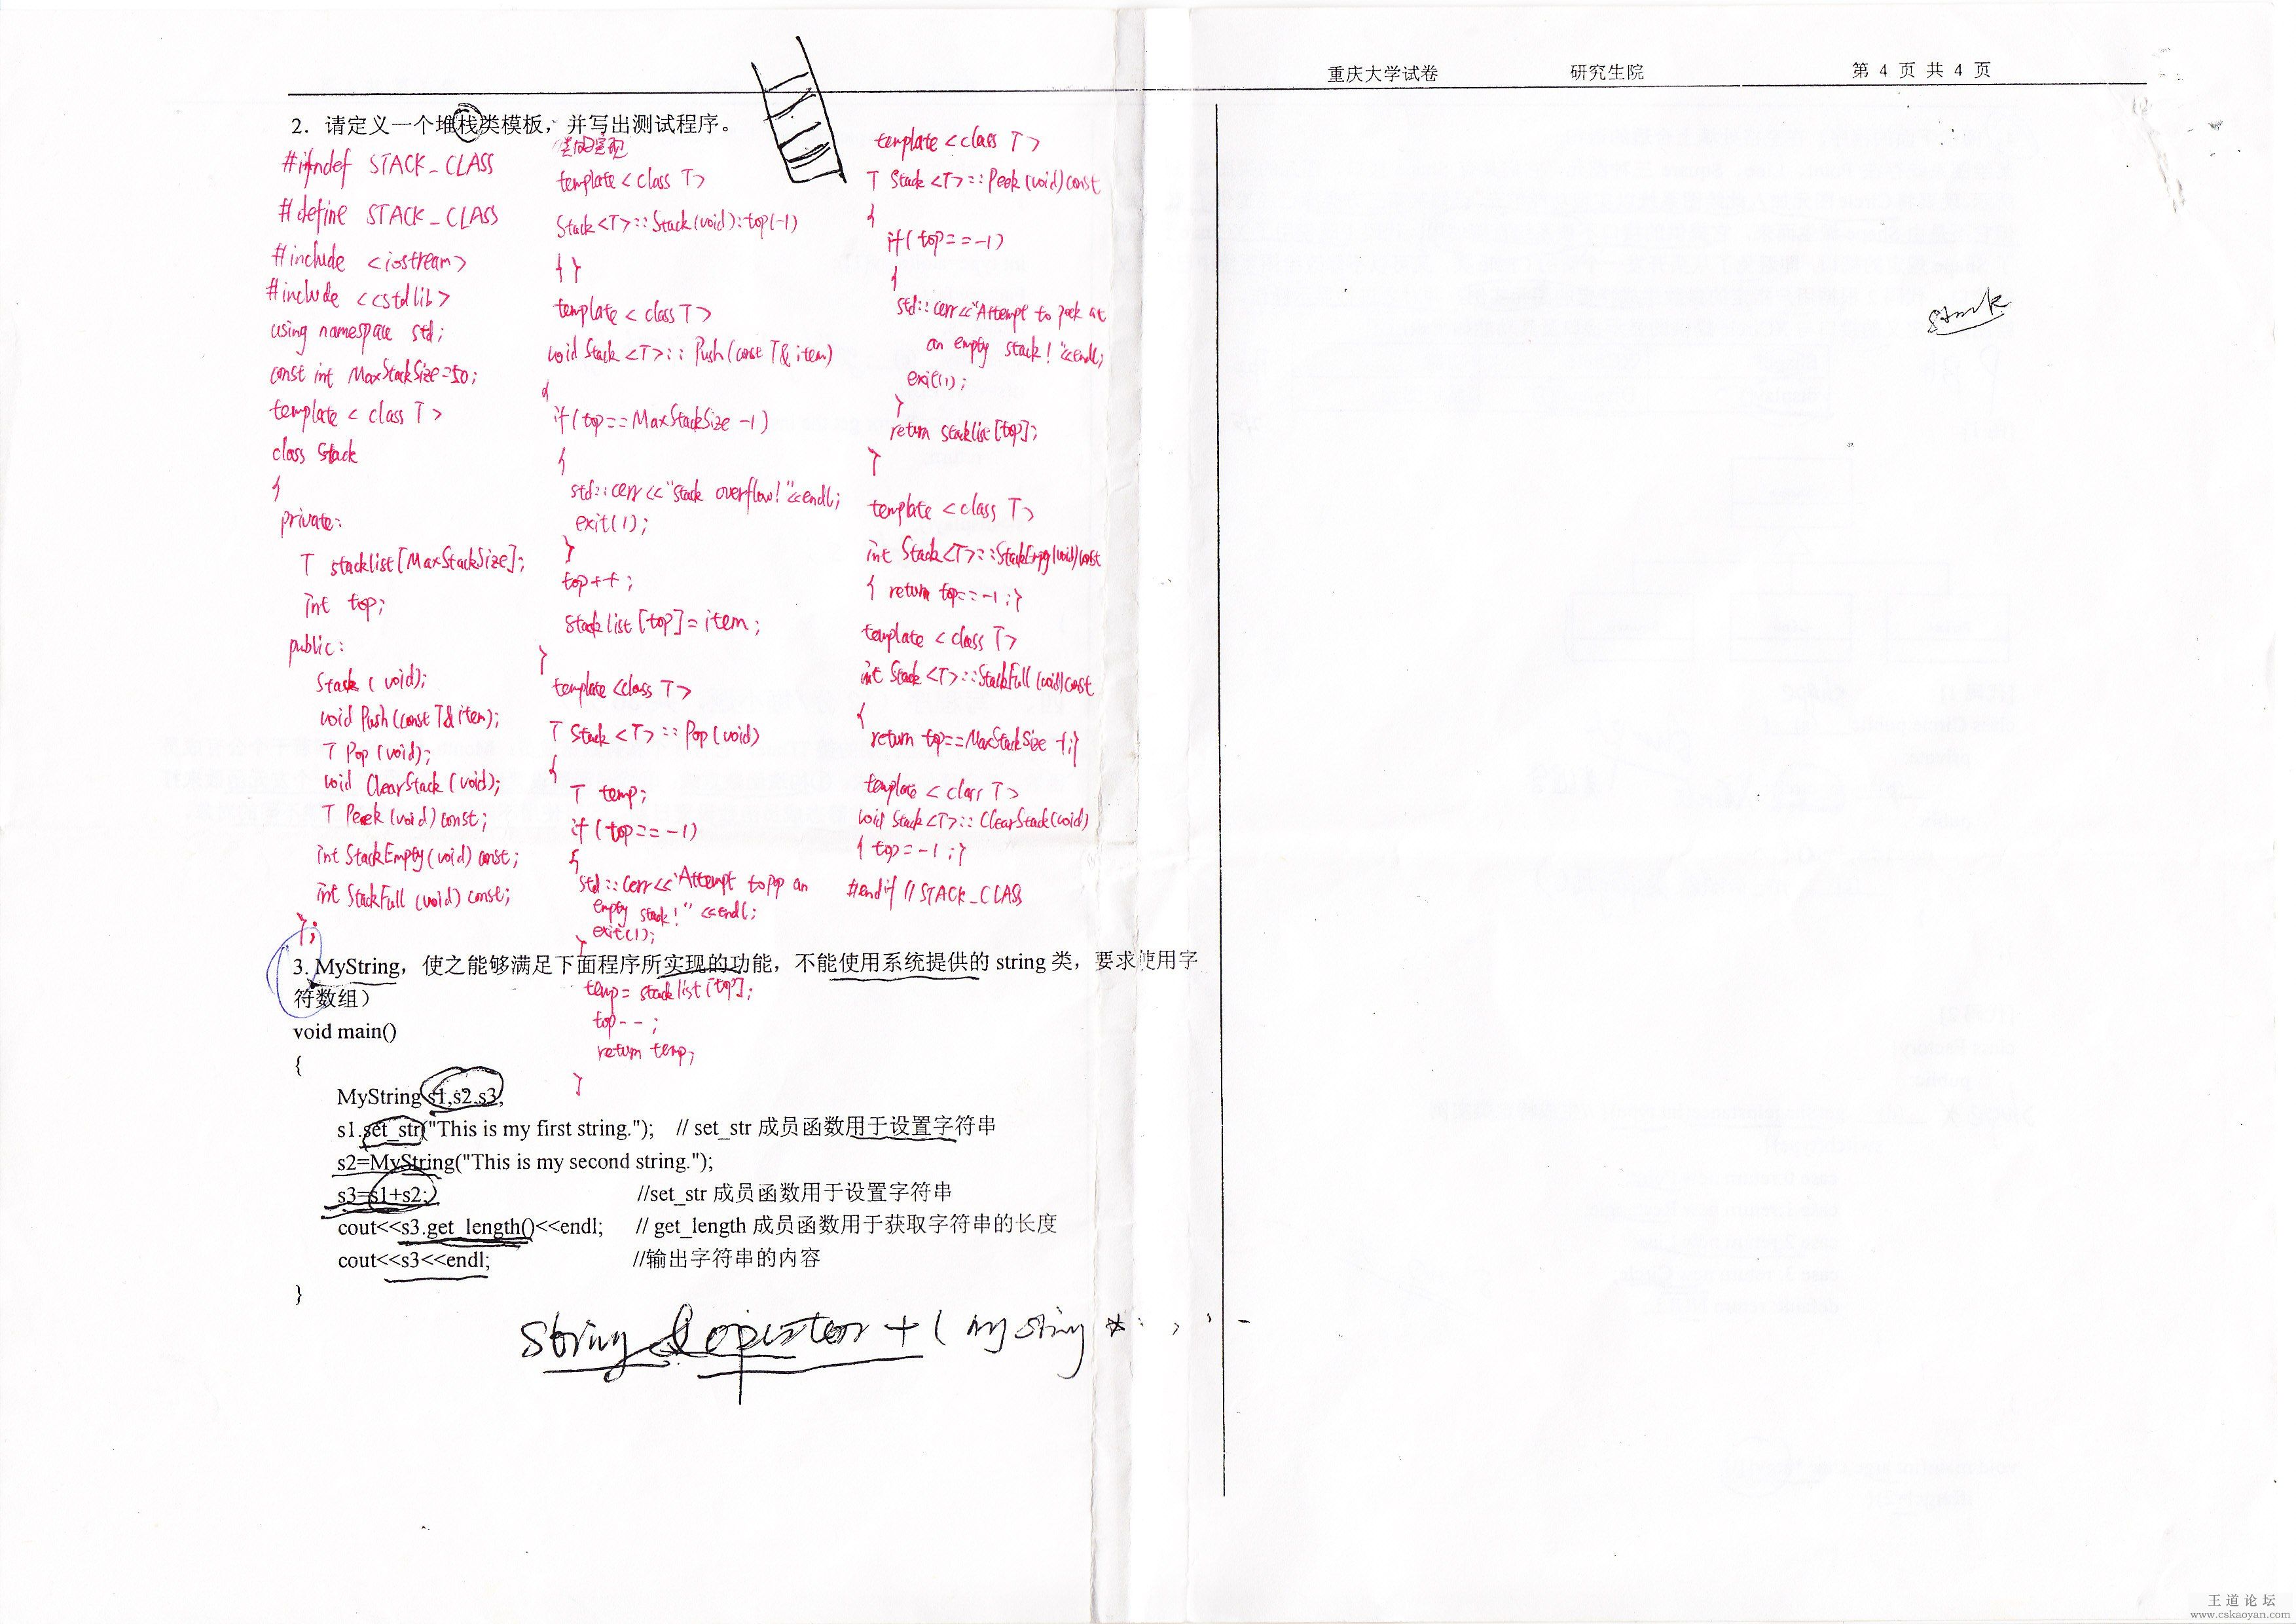 重庆大学试卷 研究生院 第 4 页 共 4 页
2. 请定义一个堆栈类模板，并写出测试程序。
#ifndef STACK_CLASS
#define STACK_CLASS
#include <iostream>
#include <cstdlib>
using namespace std;
const int MaxStackSize=50;
template < class T >
class Stack
{
private:
T stacklist[MaxStackSize];
int top;
public:
Stack (void);
void Push(const T& item);
T Pop (void);
void ClearStack (void);
T Peek (void) const;
int StackEmpty (void) const;
int StackFull (void) const;
};
类的实现
template < class T>
Stack <T>::Stack(void):top(-1)
{ }
template < class T>
void Stack <T>:: Push(const T& item)
{
if (top==MaxStackSize -1)
{
std::cerr<<"stack overflow!"<<endl;
exit(1);
}
top++;
stacklist[top]=item;
}
template <class T>
T Stack <T>:: Pop (void)
{
T temp;
if (top== -1)
{
std::cerr<<"Attempt to pop an
empty stack!" <<endl;
exit(1);
}
temp= stacklist[top];
top--;
return temp;
}
template <class T>
T Stack <T>::Peek (void) const
{
if (top==-1)
{
std::cerr<<"Attempt to peek at
an empty stack! "<<endl;
exit(1);
}
return stacklist[top];
}
template <class T>
int Stack <T>::StackEmpty(void)const
{ return top==-1;}
template < class T>
int Stack <T>::StackFull (void)const
{
return top==MaxStackSize -1;}
template < class T>
void Stack <T>:: ClearStack(void)
{ top=-1;}
#endif //STACK_CLASS
stack
3. MyString，使之能够满足下面程序所实现的功能，不能使用系统提供的 string 类，要求使用字
符数组）
void main()
{
MyString s1,s2,s3;
s1.set_str("This is my first string."); // set_str 成员函数用于设置字符串
s2=MyString("This is my second string.");
s3=s1+s2; //set_str 成员函数用于设置字符串
cout<<s3.get_length()<<endl; // get_length 成员函数用于获取字符串的长度
cout<<s3<<endl; //输出字符串的内容
}
string & + ( mystring
王道论坛
www.cskaoyan.com